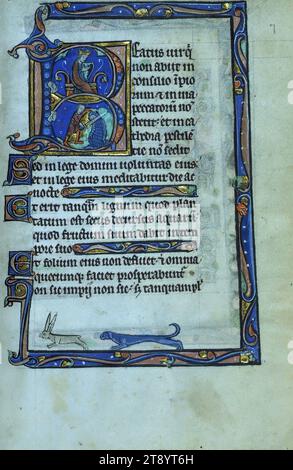 Beatus uir q
non abiit in
consilio ipio
rum & in uia
peccatorum no
stetit et in ca
thedra pestile
tie non sedit
Sed in lege domini uoluntas eius
et in lege eius meditabitur die ac
nocte
Et erit tanqm lignum quod plan
tatum est secus decursus aquarū
quod fructum suum dabit in tem
pore suo
Et folium eius non defluet & omnia
quecumque faciet prosperabunt
Non sic impii non sic tanquam pul
7